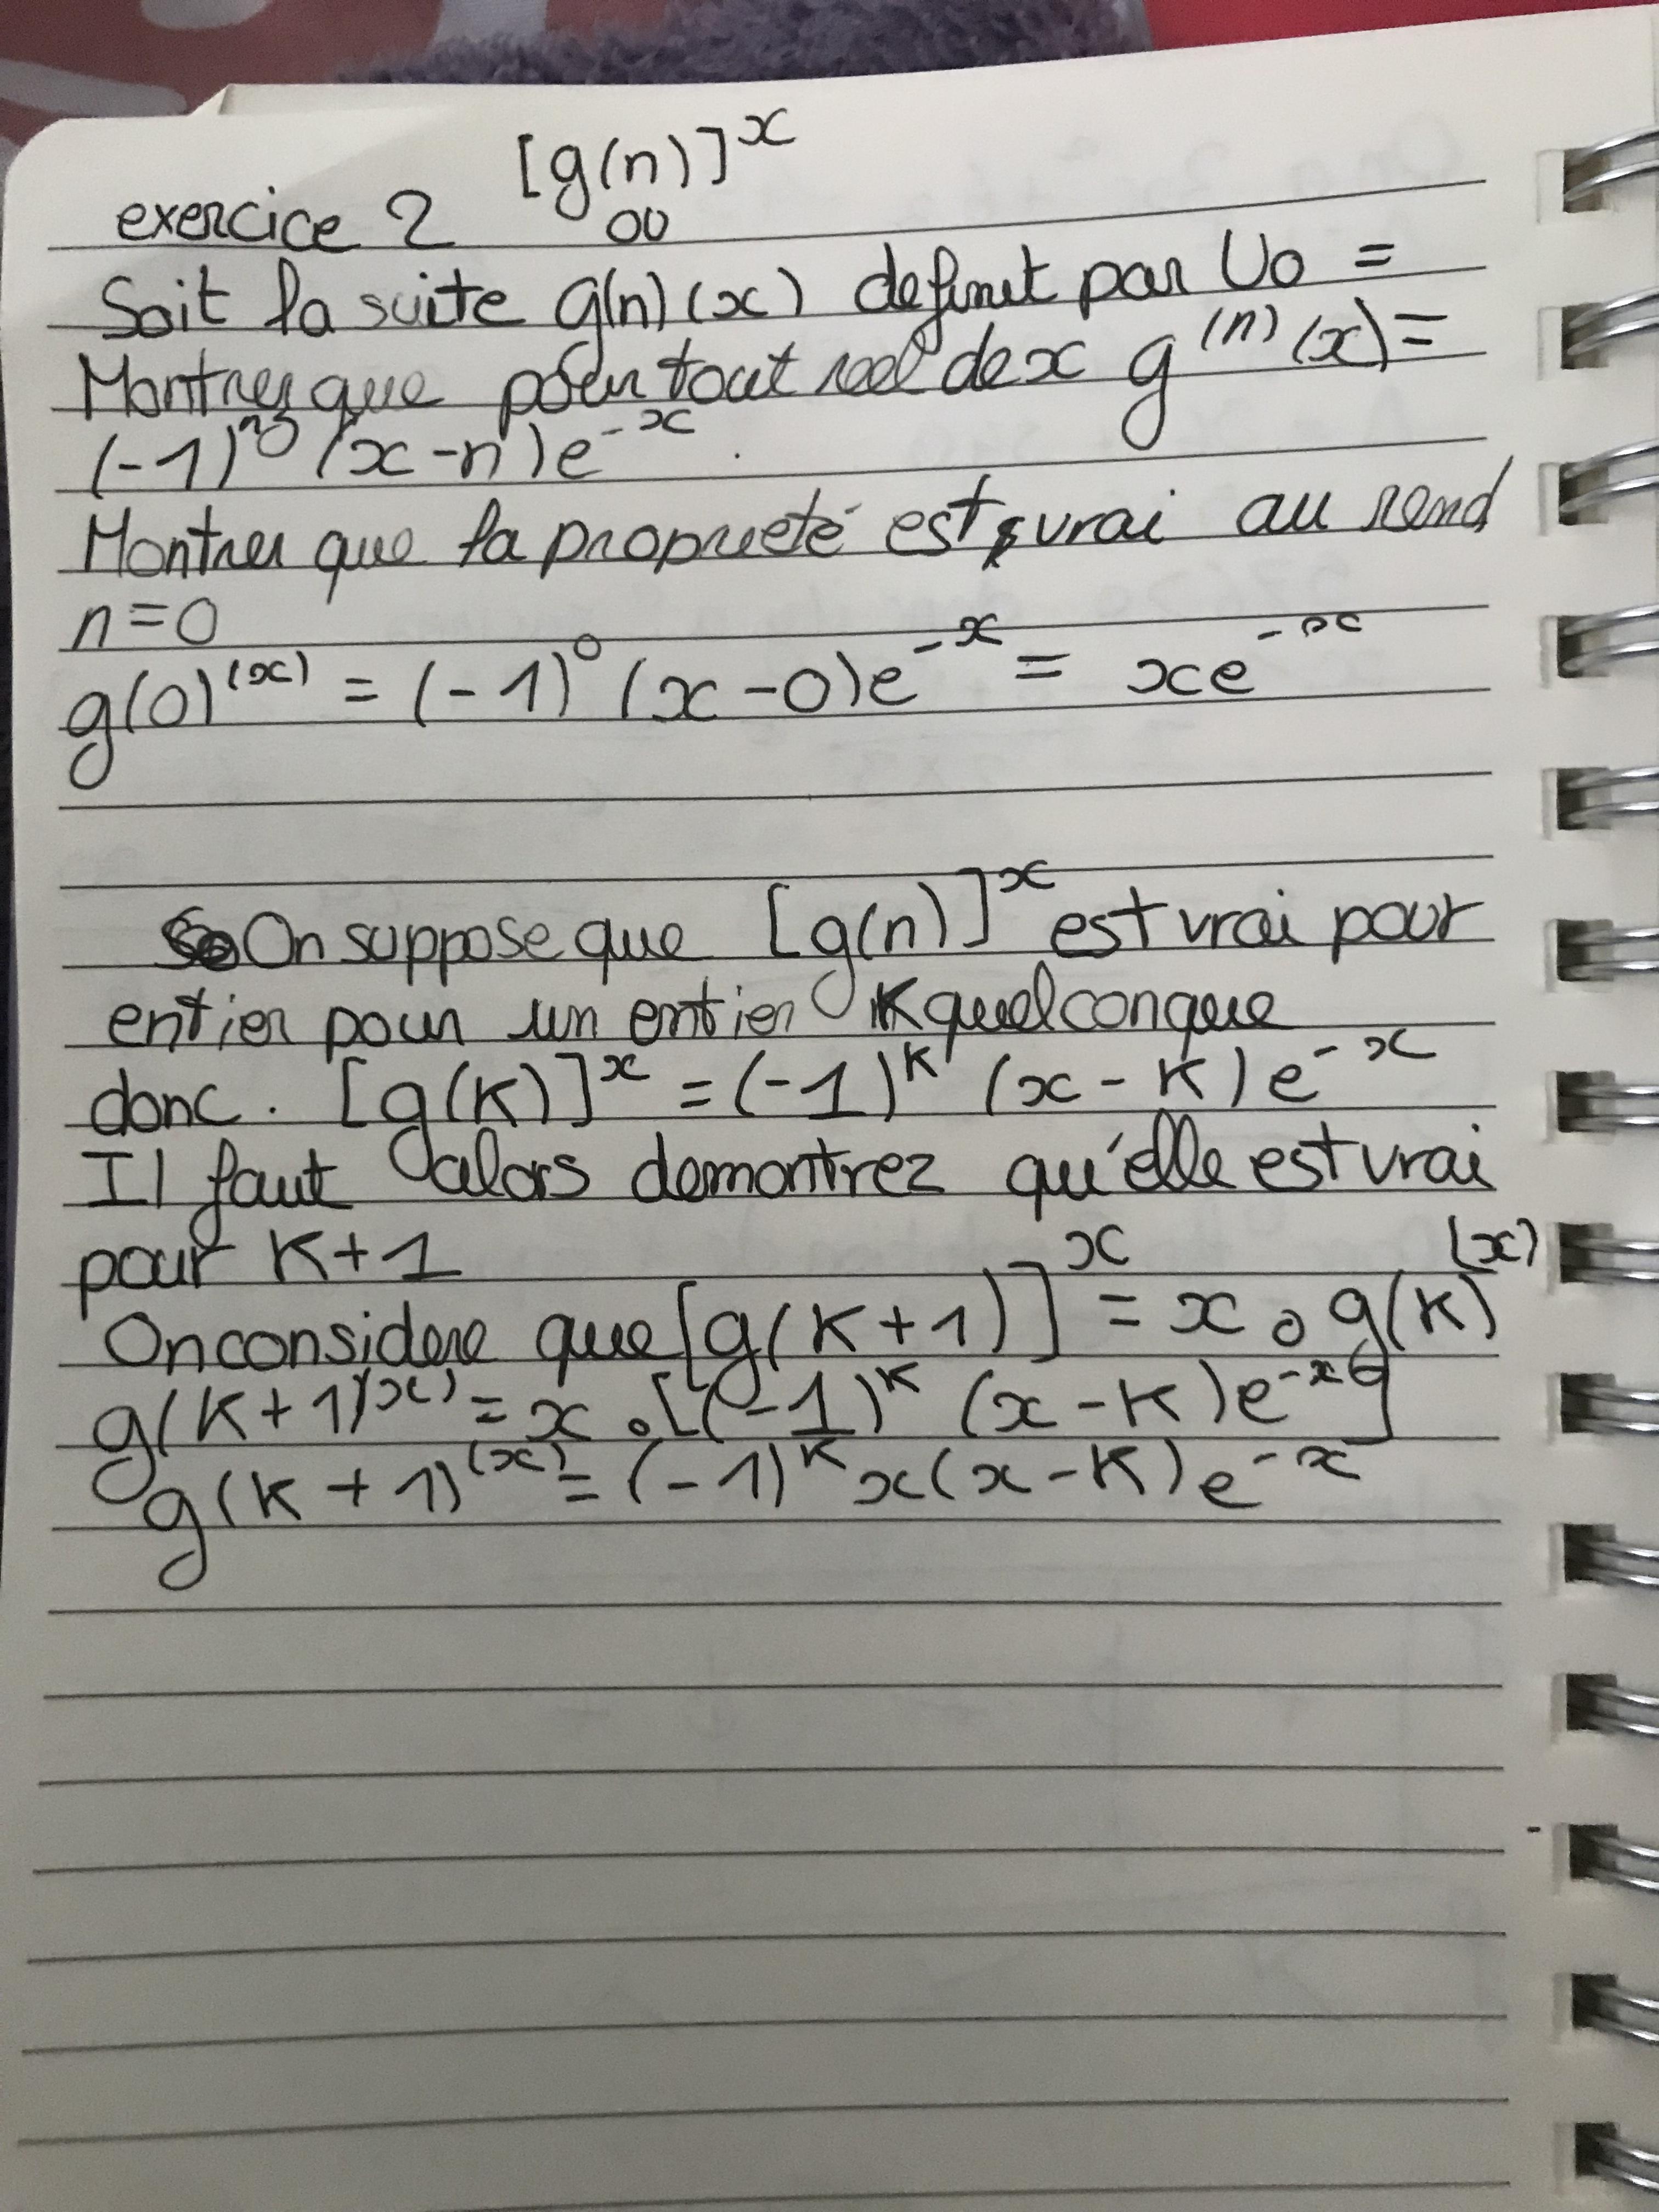 [g(n)]^x
exercice 2 00
Soit la suite g(n)(x) definit par U0 =
Montrer que pour tout reel de x g^(n)(x)=
(-1)^n (x-n)e^-x .
Montrer que la proprieté est vrai au rend
n=0
g(0)^(x) = (-1)^0 (x-0)e^-x = xe^-x
On suppose que [g(n)]^x est vrai pour
entier pour un entier K quelconque
donc. [g(K)]^x = (-1)^K (x-K)e^-x
Il faut alors demontrez qu'elle est vrai
pour K+1
On considere que [g(K+1)]^x = x . g(K)^(x)
g(K+1)^(x) = x . [(-1)^K (x-K)e^-x]
g(K+1)^(x) = (-1)^K x(x-K)e^-x